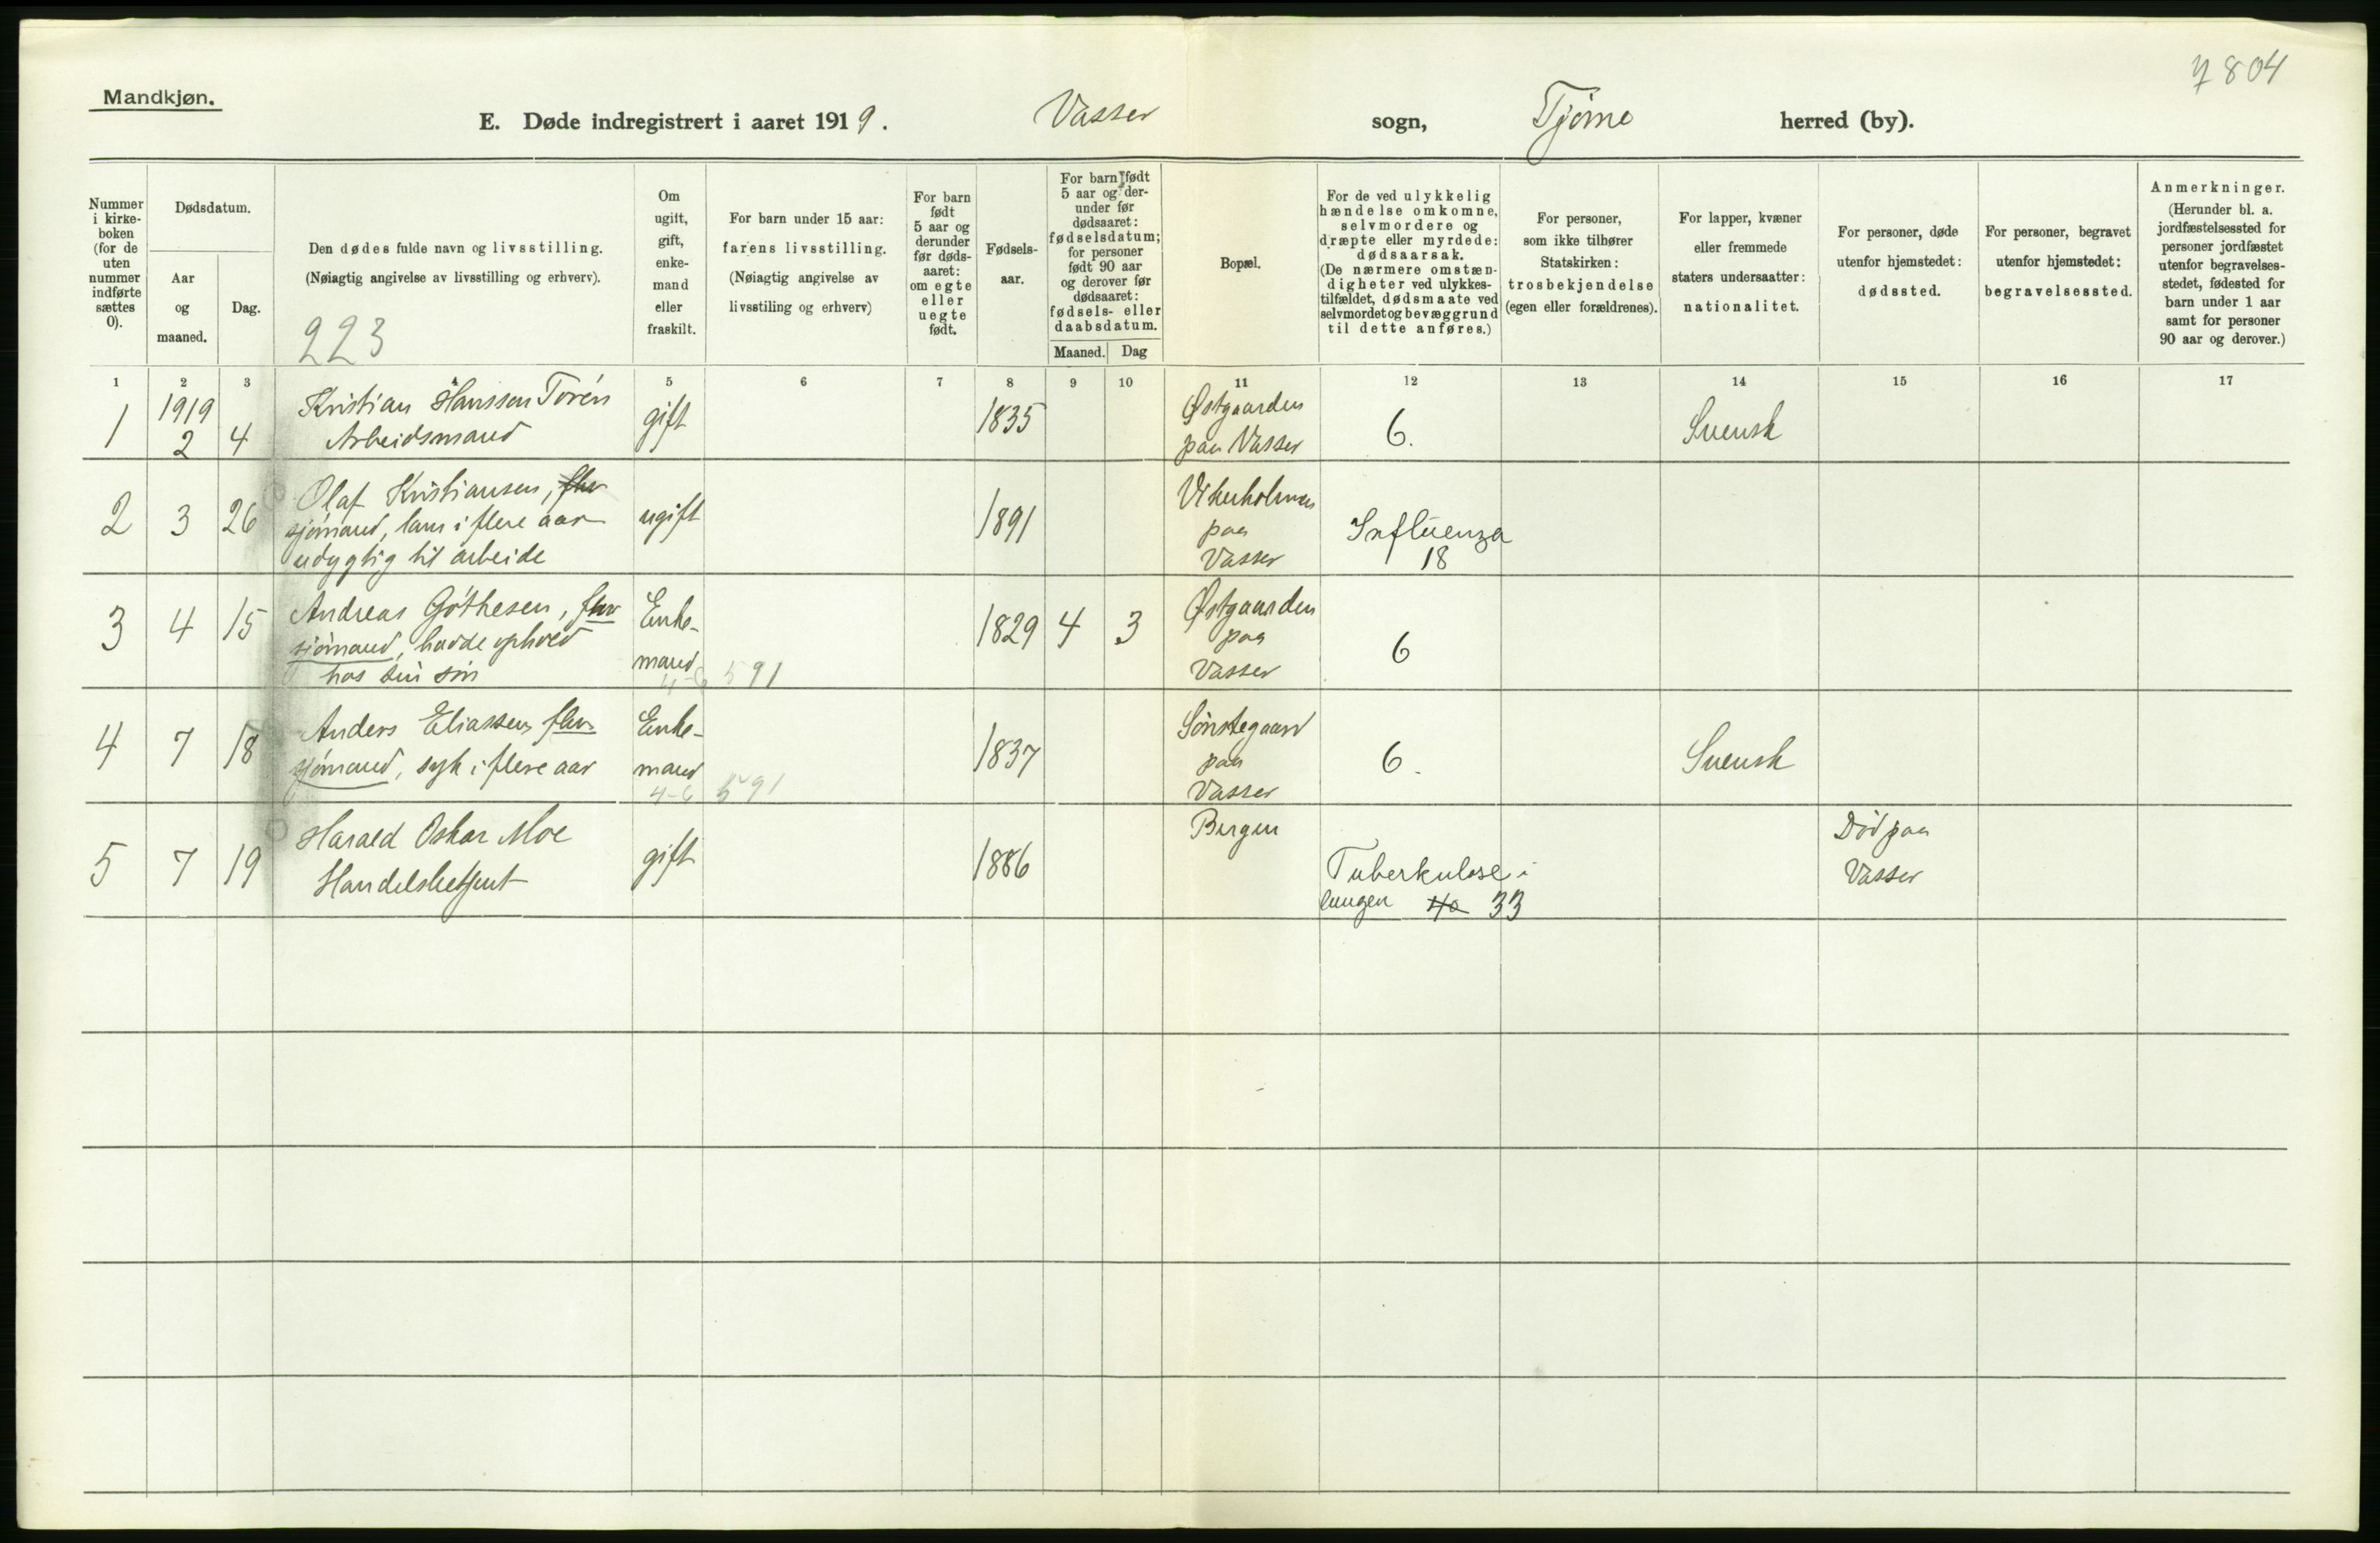 7804
Mandkjøn.
E. Døde indregistrert i aaret 1919. Vasser sogn, Tjømø herred (by).
Nummer
i kirke-
boken
(for de
uten
nummer
indførte
sættes
0).
Dødsdatum.
Aar
og
maaned.
Dag.
Den dødes fulde navn og livsstilling.
(Nøiagtig angivelse av livsstilling og erhverv).
223
Om
ugift,
gift,
enke-
mand
eller
fraskilt.
For barn under 15 aar:
farens livsstilling.
(Nøiagtig angivelse av
livsstiling og erhverv)
For barn
født
5 aar og
derunder
før døds-
aaret:
om egte
eller
uegte
født.
Fødsels-
aar.
For barn født
5 aar og der-
under før
dødsaaret:
fødselsdatum;
for personer
født 90 aar
og derover før
dødsaaret:
fødsels- eller
daabsdatum.
Maaned. Dag
Bopæl.
For de ved ulykkelig
hændelse omkomne,
selvmordere og
dræpte eller myrdede:
dødsaarsak.
(De nærmere omstæn-
digheter ved ulykkes-
tilfældet, dødsmaate ved
selvmordet og bevæggrund
til dette anføres.)
For personer,
som ikke tilhører
Statskirken:
trosbekjendelse
(egen eller forældrenes).
For lapper, kvæner
eller fremmede
staters undersaatter:
nationalitet.
For personer, døde
utenfor hjemstedet:
dødssted.
For personer, begravet
utenfor hjemstedet:
begravelsessted.
Anmerkninger.
(Herunder bl. a.
jordfæstelsessted for
personer jordfæstet
utenfor begravelses-
stedet, fødested for
barn under 1 aar
samt for personer
90 aar og derover.)
1 2 3 4 5 6 7 8 9 10 11 12 13 14 15 16 17
1
1919
2 4
Kristian Hanssen Torén
Arbeidsmand
gift
1835
Østgaarden
paa Vasser
6.
Svensk
2 3 26
Olaf Kristiansen, fhv
sjömand, lam i flere aar
udygtig til arbeide
ugift
1891
paa
Vasser
Influenza
18
3 4 15
Andreas Göthesen, fhv
sjömand, havde ophold
hos sin sön
Enke-
mand
4-6 591
1829 4 3
Østgaarden
paa
Vasser
6
4 7 18
Anders Eliassen, fhv.
sjömand, syk i flere aar
Enke-
mand
4-6 591
1837
Sönstegaard
paa
Vasser
6.
Svensk
5 7 19
Harald Oskar Moe
Handelsbetjent
gift
1886
Bergen
Tuberkulose i
lungen 40 33
Död paa
Vasser